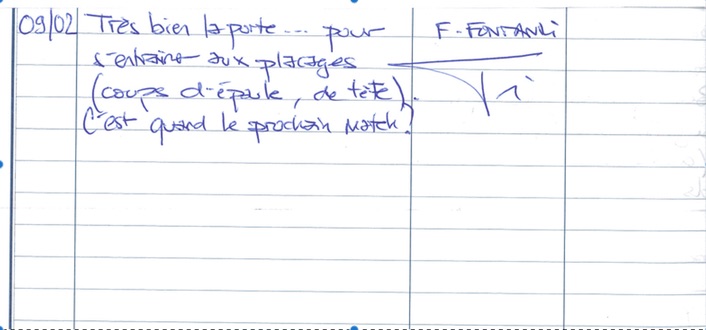 09/02 Très bien la porte... pour F. FONTANLI
s'entrainer aux placages
(coups d'épaule, de tête).
C'est quand le prochain match?